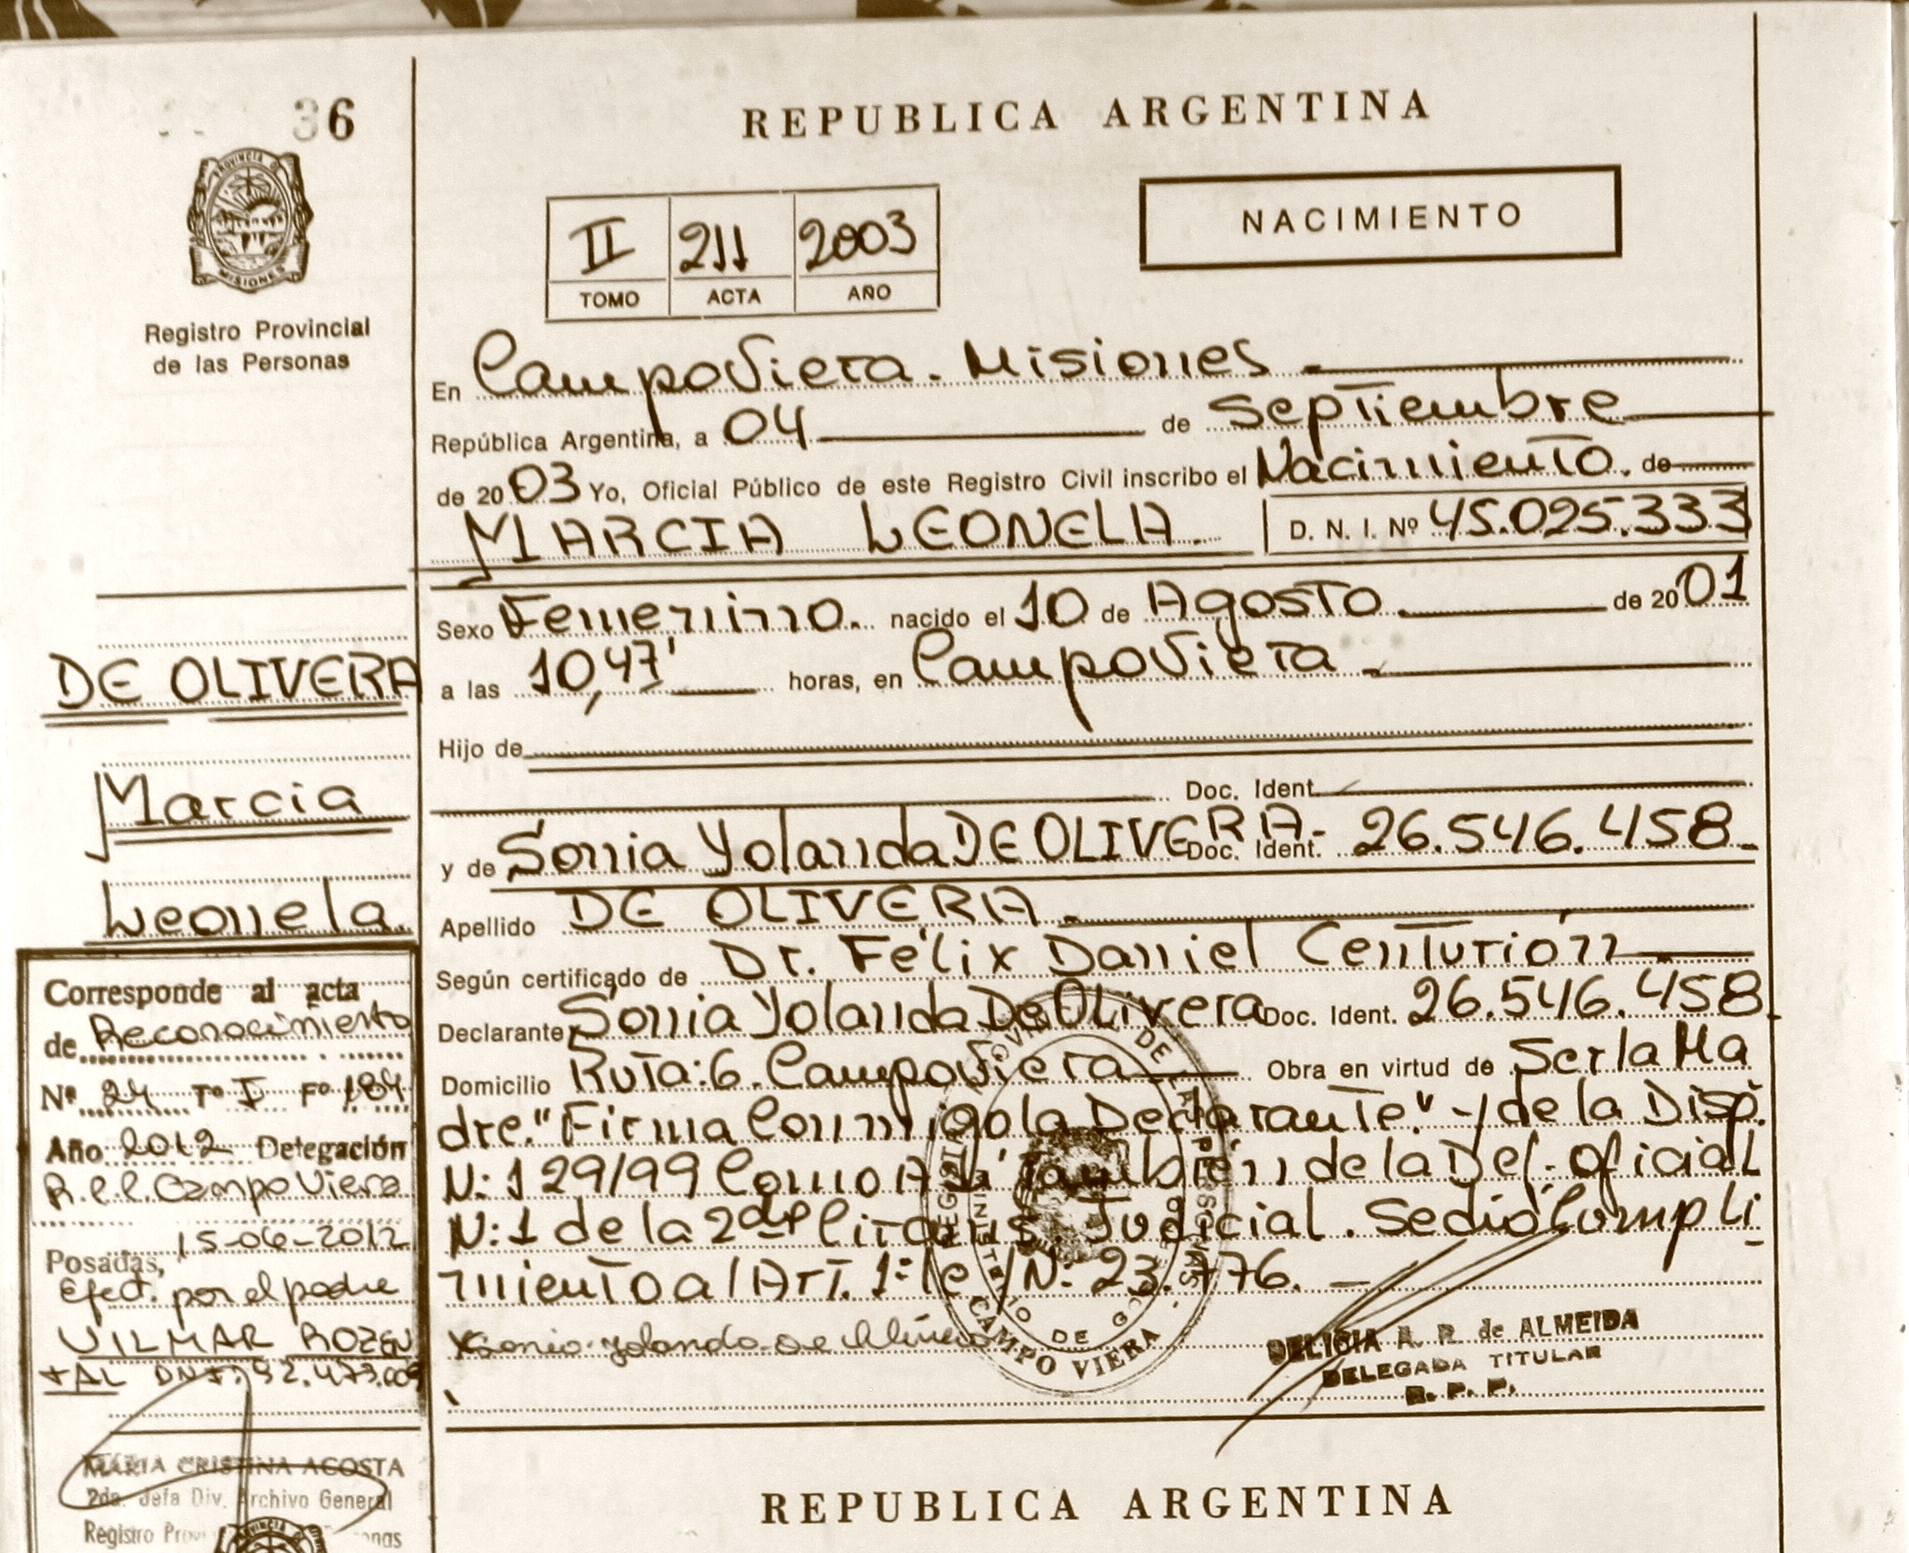 36
PROVINCIA D
MISIONES
Registro Provincial
de las Personas
DE OLIVERA
Marcia
Leonela.
Corresponde al acta
de Reconocimiento
Nº 24 Tº I Fº 184
Año 2012 Delegación
R.C.C. Campo Viera
Posadas, 15-06-2012
Efect. por el padre
VILMAR ROZEN
TAL DNI. 92.473.009
MARIA CRISTINA ACOSTA
2da. Jefa Div. Archivo General
Registro Prov onas
REPUBLICA ARGENTINA
II 211 2003
TOMO ACTA AÑO
NACIMIENTO
En Campo Viera. Misiones.
República Argentina, a 04 de Septiembre
de 2003 Yo, Oficial Público de este Registro Civil inscribo el Nacimiento. de
MARCIA LEONELA. D. N. I. Nº 45.025.333
Sexo Femenino. nacido el 10 de Agosto. de 2001
a las 10,47' horas, en Campo Viera
Hijo de
Doc. Ident.
y de Sonia Yolanda DE OLIVERA- Doc. Ident. 26.546.458.
Apellido DE OLIVERA.
Según certificado de Dr. Félix Daniel Centurión
Declarante Sonia Yolanda De Olivera Doc. Ident. 26.546.458
Domicilio Ruta:6. Campo Viera Obra en virtud de Ser la Ma
dre. "Firma Conmigo la Declarante." y de la Disp.
N: 129/99 Como Así También de la Def. Oficial
N:1 de la 2da Circuns. Judicial. Se dió Cumpli
miento al Art. 1: ley N: 23.776.
Sonia Yolanda De Olivera
CAMPO VIERA
DELICIA R. P. de ALMEIDA
DELEGADA TITULAR
R. P. P.
REPUBLICA ARGENTINA